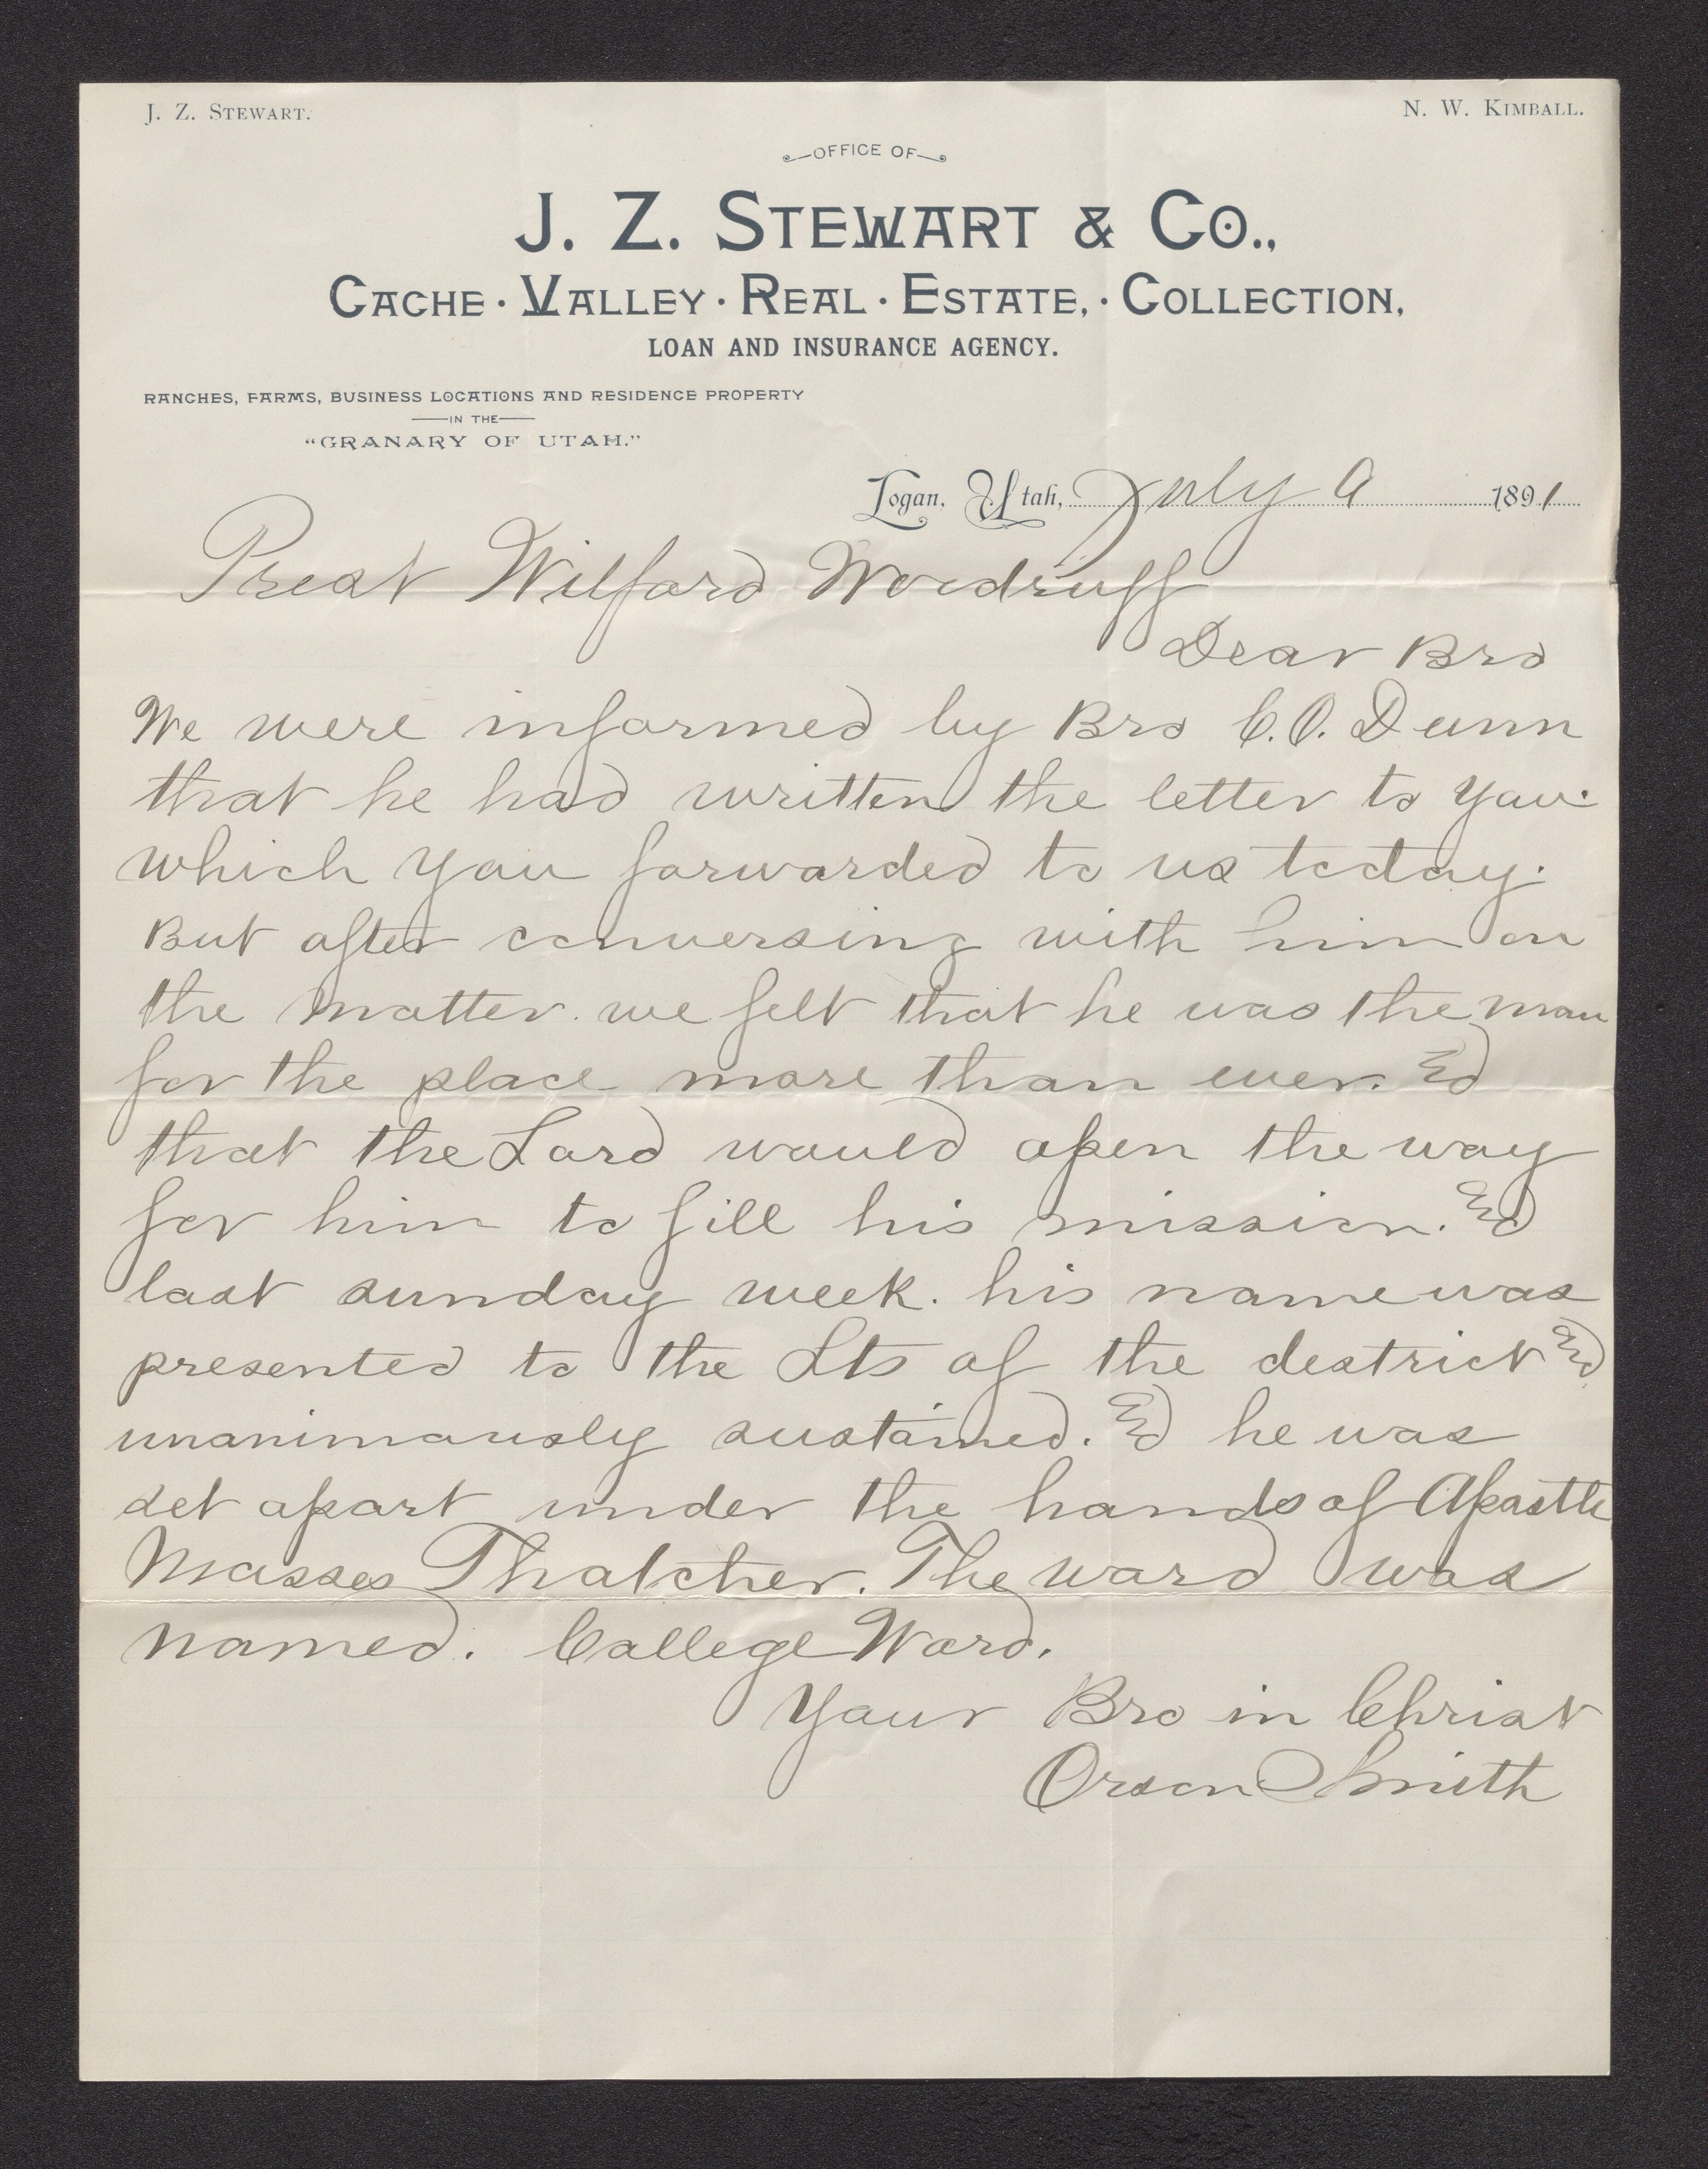 J. Z. STEWART.
N. W. KIMBALL.
OFFICE OF
J. Z. STEWART & CO.,
CACHE · VALLEY · REAL · ESTATE, · COLLECTION,
LOAN AND INSURANCE AGENCY.
RANCHES, FARMS, BUSINESS LOCATIONS AND RESIDENCE PROPERTY
IN THE
"GRANARY OF UTAH."
Logan, Utah, July 9 1891
Prest Wilford Woodruff
Dear Bro
We were informed by Bro C. O. Dunn
that he had written the letter to you.
which you forwarded to us today.
But after conversing with him on
the matter. we felt that he was the man
for the place more than ever. and
that the Lord would open the way
for him to fill his mission. and
last sunday week. his name was
presented to the Sts of the destrict and
unanimously sustained. and he was
set apart under the hands of Apostle
Mosses Thatcher. The ward was
named. College Ward.
Your Bro in Christ
Orson Smith